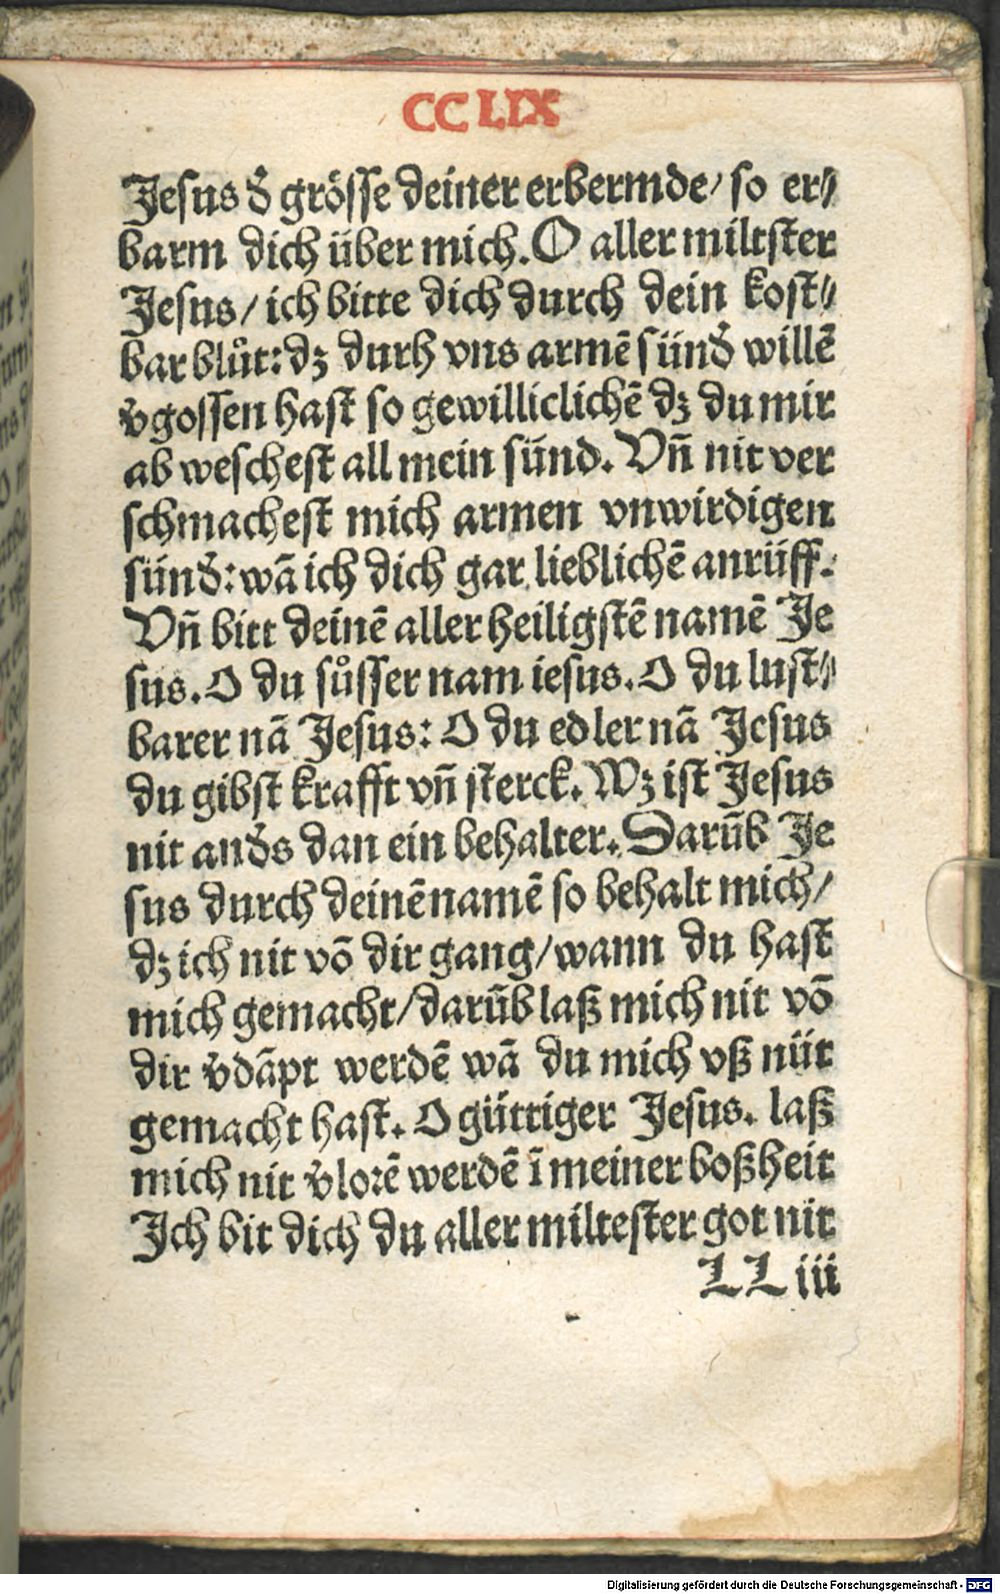 CCLIX
Jesus dˀ grösse deiner erbermde/ so er⸗
barm dich über mich. O aller miltster
Jesus/ ich bitte dich durch dein kost⸗
bar blůt: dꝫ durh vns armē sündˀ willē
vˀgossen hast so gewilliclichē dꝫ du mir
ab weschest all mein sünd. Vñ nit ver
schmachest mich armen vnwirdigen
sündˀ: wā ich dich gar lieblichē anrüff.
Vñ bitt deinē aller heiligstē namē Je
sus. O du sůsser nam iesus. O du lust⸗
barer nā Jesus: O du edler nā Jesus
du gibst krafft vñ sterck. Wꝫ ist Jesus
nit andˀs dan ein behalter. Darūb Je
sus durch deinē namē so behalt mich/
dꝫ ich nit vō dir gang/ wann du hast
mich gemacht/ darūb laß mich nit vō
dir vˀdāpt werdē wā du mich vß nüt
gemacht hast. O güttiger Jesus. laß
mich nit vˀlorē werdē ī meiner boßheit
Jch bit dich du aller miltester got nit
LL iii
Digitalisierung gefördert durch die Deutsche Forschungsgemeinschaft - DFG